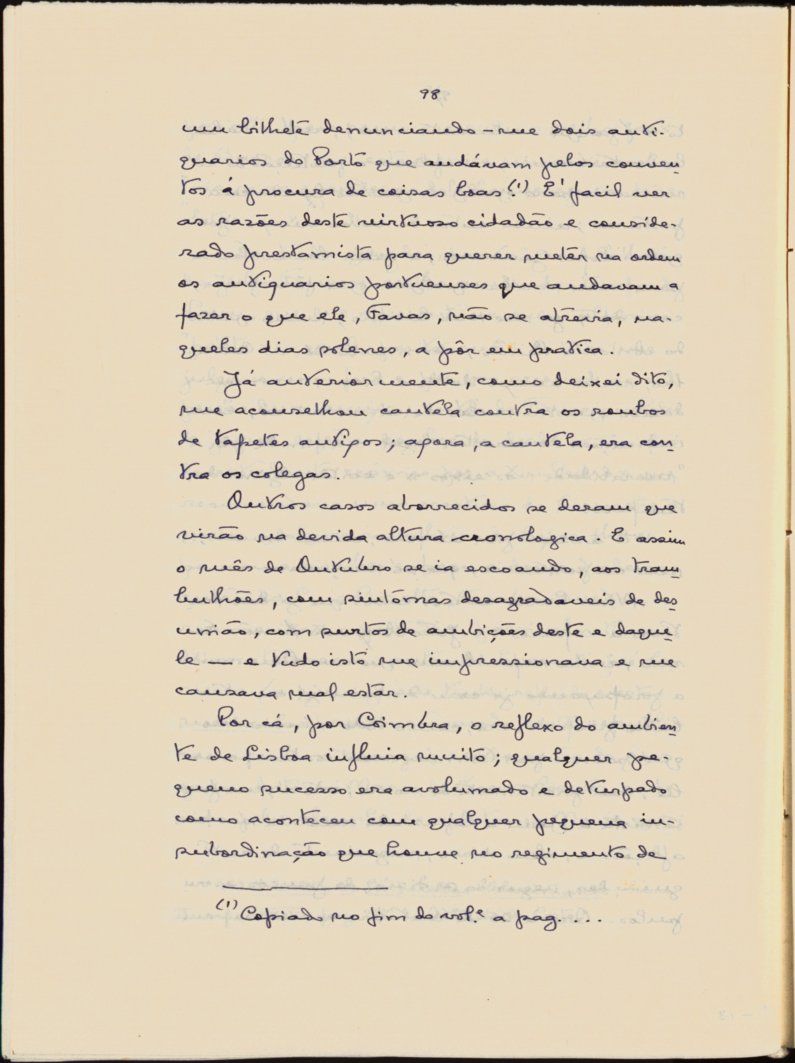 98
um bilhete denunciando-me dois anti-
quarios do Porto que andávam pelos conven-
tos á procura de coisas boas (1) E' facil ver
as razões deste virtuoso cidadão e conside-
rado prestamista para querer meter na ordem
os antiquarios portuenses que andavam a
fazer o que ele, Favas, não se atrevia, na-
queles dias solenes, a pôr em pratica.
Já anteriormente, como deixei dito,
me aconselhou cautela contra os roubos
de tapetes antigos; agora, a cautela, era con-
tra os colegas.
Outros casos aborrecidos se deram que
virão na devida altura cronologica. E assim
o mês de Outubro se ia escoando, aos tram-
bulhões, com sintómas desagradaveis de des-
união, com surtos de ambições deste e daque-
le — e tudo isto me impressionava e me
causava mal estar.
Por cá, por Coimbra, o reflexo do ambien-
te de Lisboa influia muito; qualquer pe-
queno sucesso era avolumado e deturpado
como aconteceu com qualquer pequena in-
subordinação que houve no regimento de
(1) Copiado no fim do vol.e a pag. ...